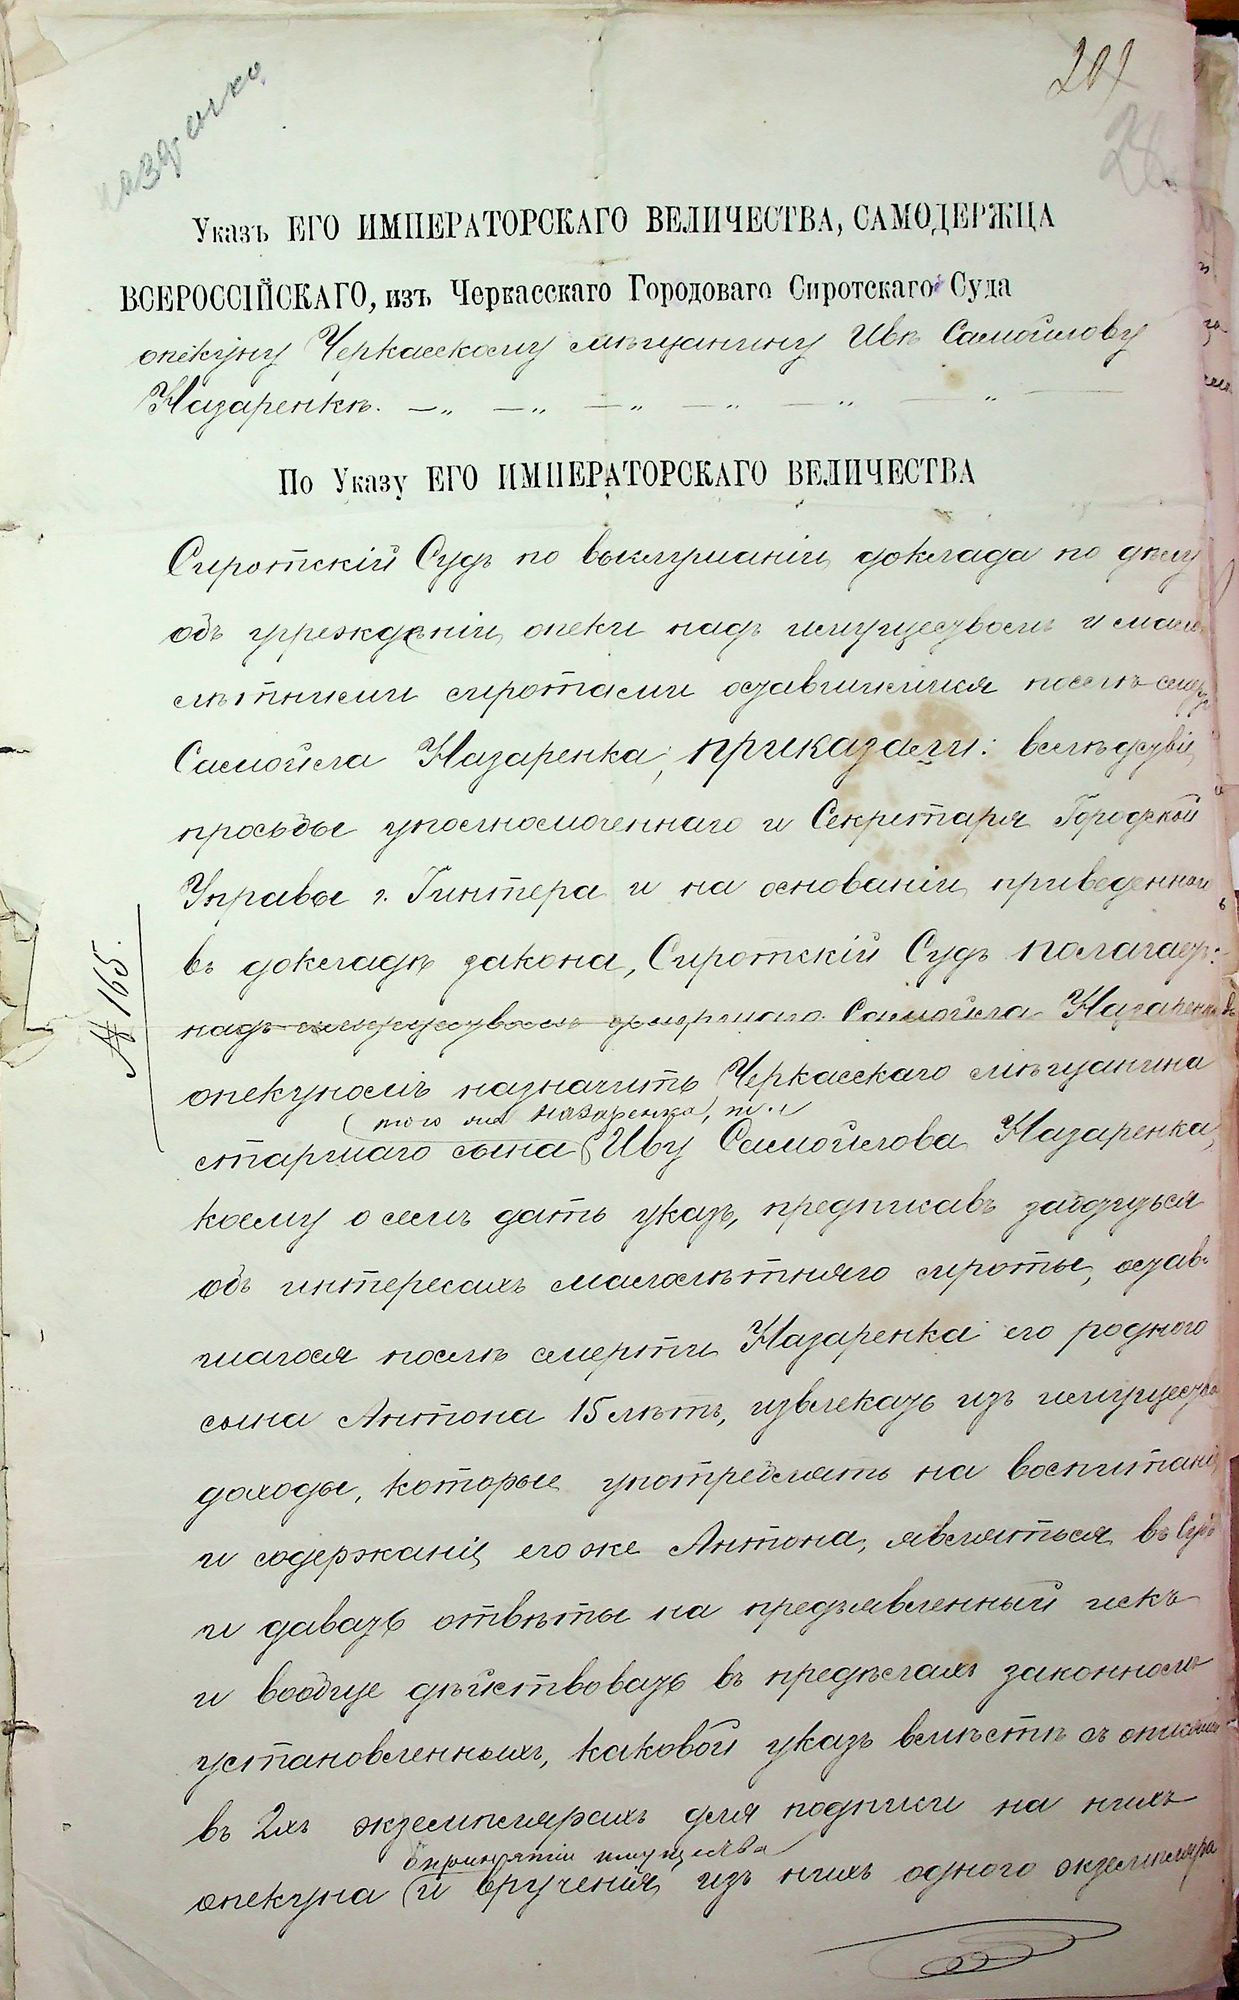 201
28
Указъ ЕГО ИМПЕРАТОРСКАГО ВЕЛИЧЕСТВА, САМОДЕРЖЦА
ВСЕРОССІЙСКАГО, изъ Черкасскаго Городоваго Сиротскаго Суда
опекуну Черкасскому мѣщанину Ивѣ Самойлову
Назаренкѣ. — „ — „ — „ — „ — „ — „ —
По Указу ЕГО ИМПЕРАТОРСКАГО ВЕЛИЧЕСТВА
Сиротскій Судъ по выслушаніи доклада по дѣлу
объ учрежденіи опеки надъ имуществомъ и мало
лѣтними сиротами оставшимися послѣ смерт
Самойла Назаренка, приказали: вслѣдствіи
просьбы уполномоченнаго и Секретаря Городской
Управы г. Гинтера и на основаніи приведеннаго
въ докладѣ закона, Сиротскій Судъ полагаетъ:
надъ имуществомъ умершаго Самойла Назаренка
опекуномъ назначить Черкасскаго мѣщанина
(того же Назаренка), т.
старшаго сына Иву Самойлова Назаренка,
коему о семъ дать указъ, предписавъ заботиться
объ интересахъ малолѣтняго сироты, остав-
шагося послѣ смерти Назаренка его роднаго
сына Антона 15 лѣтъ, извлекать изъ имущества
доходы, которые употреблять на воспитаніе
и содержаніе его же Антона, являться въ Судъ
и давать отвѣты на предъявленный искъ
и вообще дѣйствовать въ предѣлахъ закономъ
установленныхъ, каковой указъ вмѣстѣ съ описями
въ 2хъ экземплярахъ для подписи на нихъ
о принятіи имущества
опекуна и врученія изъ нихъ одного экземпляра
№ 165.